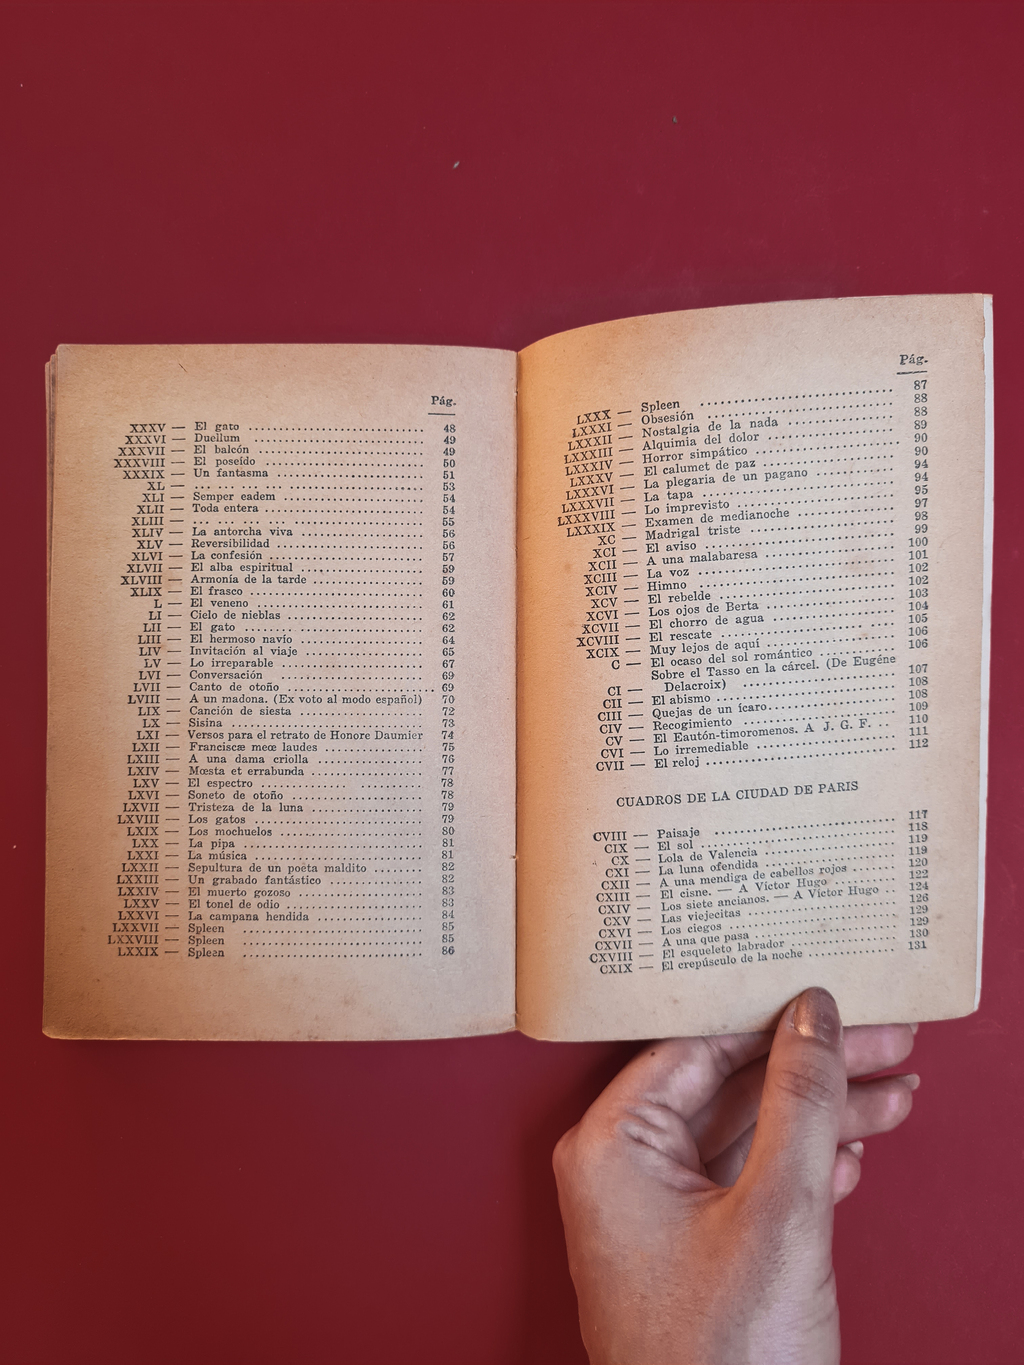 Pág.
XXXV — El gato ........................ 48
XXXVI — Duellum ........................ 49
XXXVII — El balcón ........................ 49
XXXVIII — El poseído ........................ 50
XXXIX — Un fantasma ........................ 51
XL — ... ... ... ... ........................ 53
XLI — Semper eadem ........................ 54
XLII — Toda entera ........................ 54
XLIII — ... ... ... ... ........................ 55
XLIV — La antorcha viva ........................ 56
XLV — Reversibilidad ........................ 56
XLVI — La confesión ........................ 57
XLVII — El alba espiritual ........................ 59
XLVIII — Armonía de la tarde ........................ 59
XLIX — El frasco ........................ 60
L — El veneno ........................ 61
LI — Cielo de nieblas ........................ 62
LII — El gato ........................ 62
LIII — El hermoso navío ........................ 64
LIV — Invitación al viaje ........................ 65
LV — Lo irreparable ........................ 67
LVI — Conversación ........................ 69
LVII — Canto de otoño ........................ 69
LVIII — A un madona. (Ex voto al modo español) 70
LIX — Canción de siesta ........................ 72
LX — Sisina ........................ 73
LXI — Versos para el retrato de Honore Daumier 74
LXII — Franciscæ meœ laudes ........................ 75
LXIII — A una dama criolla ........................ 76
LXIV — Mœsta et errabunda ........................ 77
LXV — El espectro ........................ 78
LXVI — Soneto de otoño ........................ 78
LXVII — Tristeza de la luna ........................ 79
LXVIII — Los gatos ........................ 79
LXIX — Los mochuelos ........................ 80
LXX — La pipa ........................ 81
LXXI — La música ........................ 81
LXXII — Sepultura de un poeta maldito ........ 82
LXXIII — Un grabado fantástico ........................ 82
LXXIV — El muerto gozoso ........................ 83
LXXV — El tonel de odio ........................ 83
LXXVI — La campana hendida ........................ 84
LXXVII — Spleen ........................ 85
LXXVIII — Spleen ........................ 85
LXXIX — Spleen ........................ 86
Pág.
LXXX — Spleen ........................ 87
LXXXI — Obsesión ........................ 88
LXXXII — Nostalgia de la nada ........................ 88
LXXXIII — Alquimia del dolor ........................ 89
LXXXIV — Horror simpático ........................ 90
LXXXV — El calumet de paz ........................ 90
LXXXVI — La plegaria de un pagano ............ 94
LXXXVII — La tapa ........................ 94
LXXXVIII — Lo imprevisto ........................ 95
LXXXIX — Examen de medianoche ............ 97
XC — Madrigal triste ........................ 98
XCI — El aviso ........................ 99
XCII — A una malabaresa ........................ 100
XCIII — La voz ........................ 101
XCIV — Himno ........................ 102
XCV — El rebelde ........................ 102
XCVI — Los ojos de Berta ........................ 103
XCVII — El chorro de agua ........................ 104
XCVIII — El rescate ........................ 105
XCIX — Muy lejos de aquí ........................ 106
C — El ocaso del sol romántico ............ 106
CI — Sobre el Tasso en la cárcel. (De Eugéne
Delacroix) ........................ 107
CII — El abismo ........................ 108
CIII — Quejas de un ícaro ........................ 108
CIV — Recogimiento ........................ 109
CV — El Eautón-timoromenos. A J. G. F. .. 110
CVI — Lo irremediable ........................ 111
CVII — El reloj ........................ 112
CUADROS DE LA CIUDAD DE PARIS
CVIII — Paisaje ........................ 117
CIX — El sol ........................ 118
CX — Lola de Valencia ........................ 119
CXI — La luna ofendida ........................ 119
CXII — A una mendiga de cabellos rojos ...... 120
CXIII — El cisne. — A Víctor Hugo ........ 122
CXIV — Los siete ancianos. — A Víctor Hugo .. 124
CXV — Las viejecitas ........................ 126
CXVI — Los ciegos ........................ 129
CXVII — A una que pasa ........................ 129
CXVIII — El esqueleto labrador ........................ 130
CXIX — El crepúsculo de la noche ............ 131